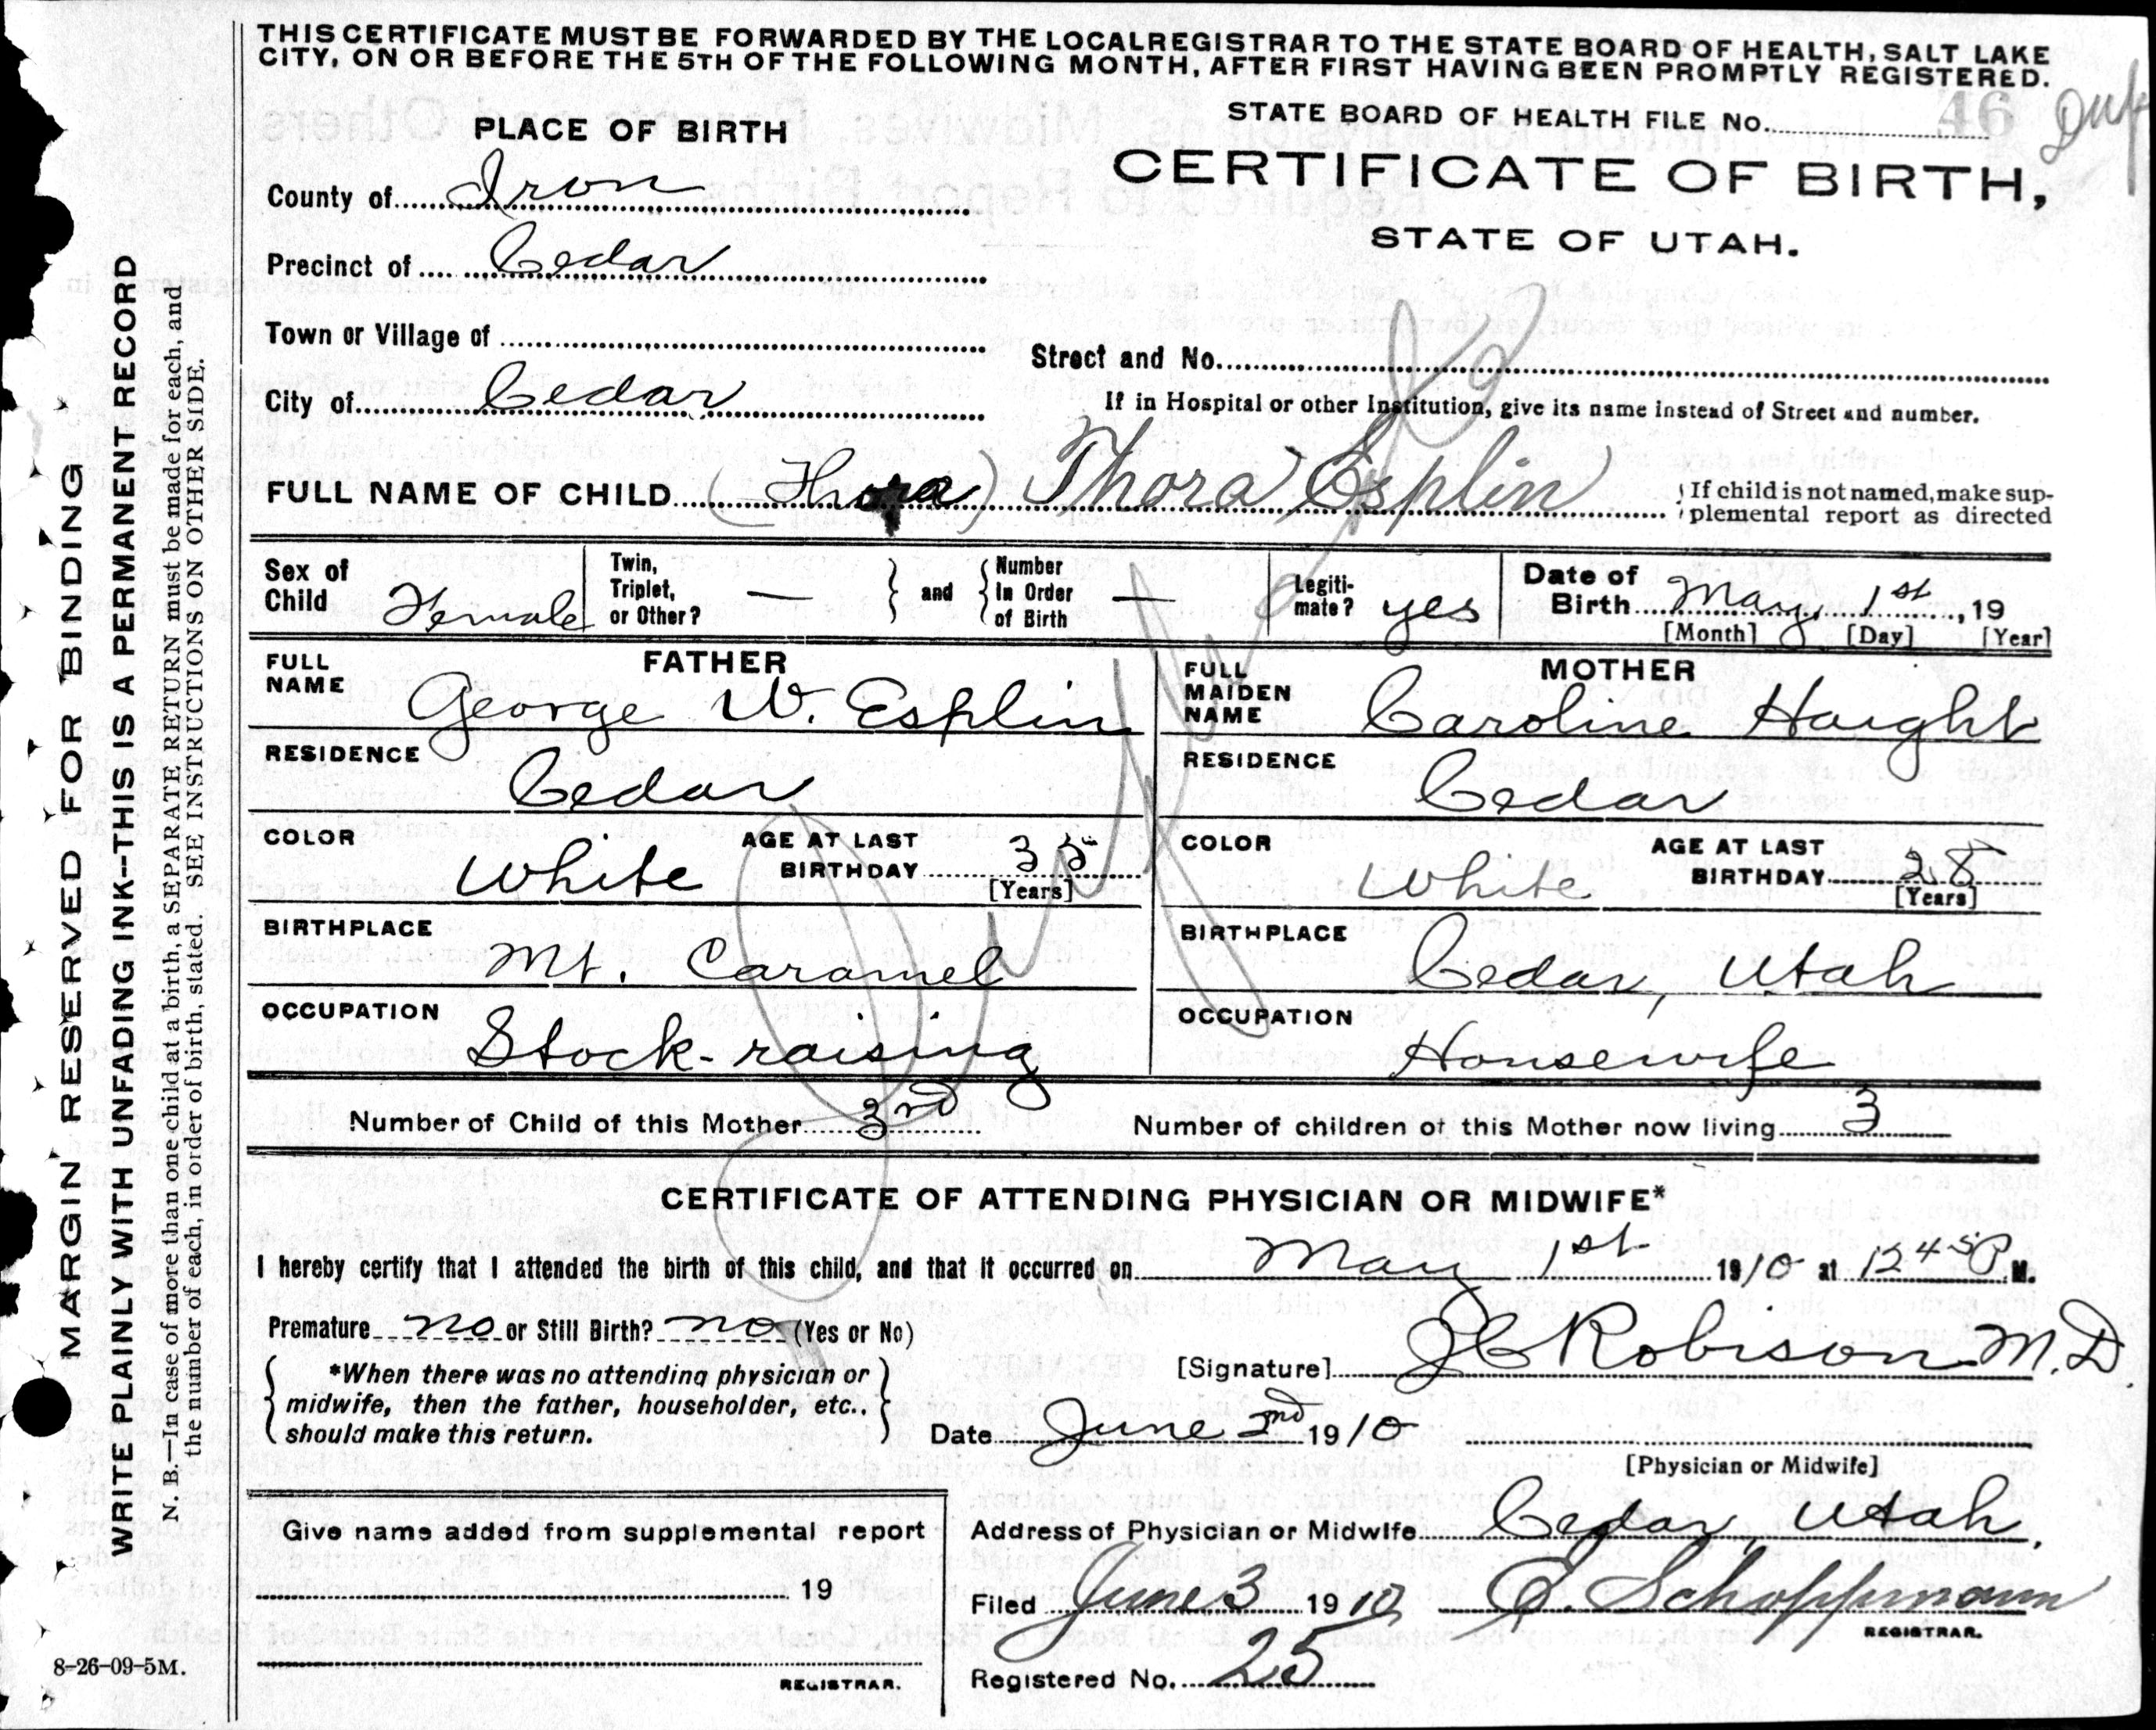 THIS CERTIFICATE MUST BE FORWARDED BY THE LOCAL REGISTRAR TO THE STATE BOARD OF HEALTH, SALT LAKE
CITY, ON OR BEFORE THE 5TH OF THE FOLLOWING MONTH, AFTER FIRST HAVING BEEN PROMPTLY REGISTERED.
PLACE OF BIRTH
STATE BOARD OF HEALTH FILE No. 46 Dup
CERTIFICATE OF BIRTH,
STATE OF UTAH.
County of Iron
Precinct of Cedar
Town or Village of
Street and No.
City of Cedar
If in Hospital or other Institution, give its name instead of Street and number.
FULL NAME OF CHILD (Thora) Thora Esplin
If child is not named, make sup-
plemental report as directed
Sex of Child Female
Twin, Triplet, or Other? —
and
Number In Order of Birth —
Legiti-mate? yes
Date of Birth May, 1st, 19
[Month] [Day] [Year]
FATHER
FULL NAME George W. Esplin
RESIDENCE Cedar
COLOR White
AGE AT LAST BIRTHDAY 35
[Years]
BIRTHPLACE Mt. Caramel
OCCUPATION Stock-raising
MOTHER
FULL MAIDEN NAME Caroline Haight
RESIDENCE Cedar
COLOR White
AGE AT LAST BIRTHDAY 28
[Years]
BIRTHPLACE Cedar, Utah
OCCUPATION Housewife
Dup
Number of Child of this Mother 3rd
Number of children of this Mother now living 3
CERTIFICATE OF ATTENDING PHYSICIAN OR MIDWIFE*
I hereby certify that I attended the birth of this child, and that it occurred on May 1st 1910 at 12 45 P.M.
Premature no or Still Birth? no (Yes or No)
*When there was no attending physician or
midwife, then the father, householder, etc.,
should make this return.
[Signature] J C Robison M.D.
Date June 2nd 1910
[Physician or Midwife]
Give name added from supplemental report
19
REGISTRAR.
Address of Physician or Midwife Cedar, Utah.
Filed June 3 1910 E. Schoppmann
REGISTRAR.
Registered No. 25
8-26-09-5M.
MARGIN RESERVED FOR BINDING
WRITE PLAINLY WITH UNFADING INK--THIS IS A PERMANENT RECORD
N. B.—In case of more than one child at a birth, a SEPARATE RETURN must be made for each, and
the number of each, in order of birth, stated. SEE INSTRUCTIONS ON OTHER SIDE.